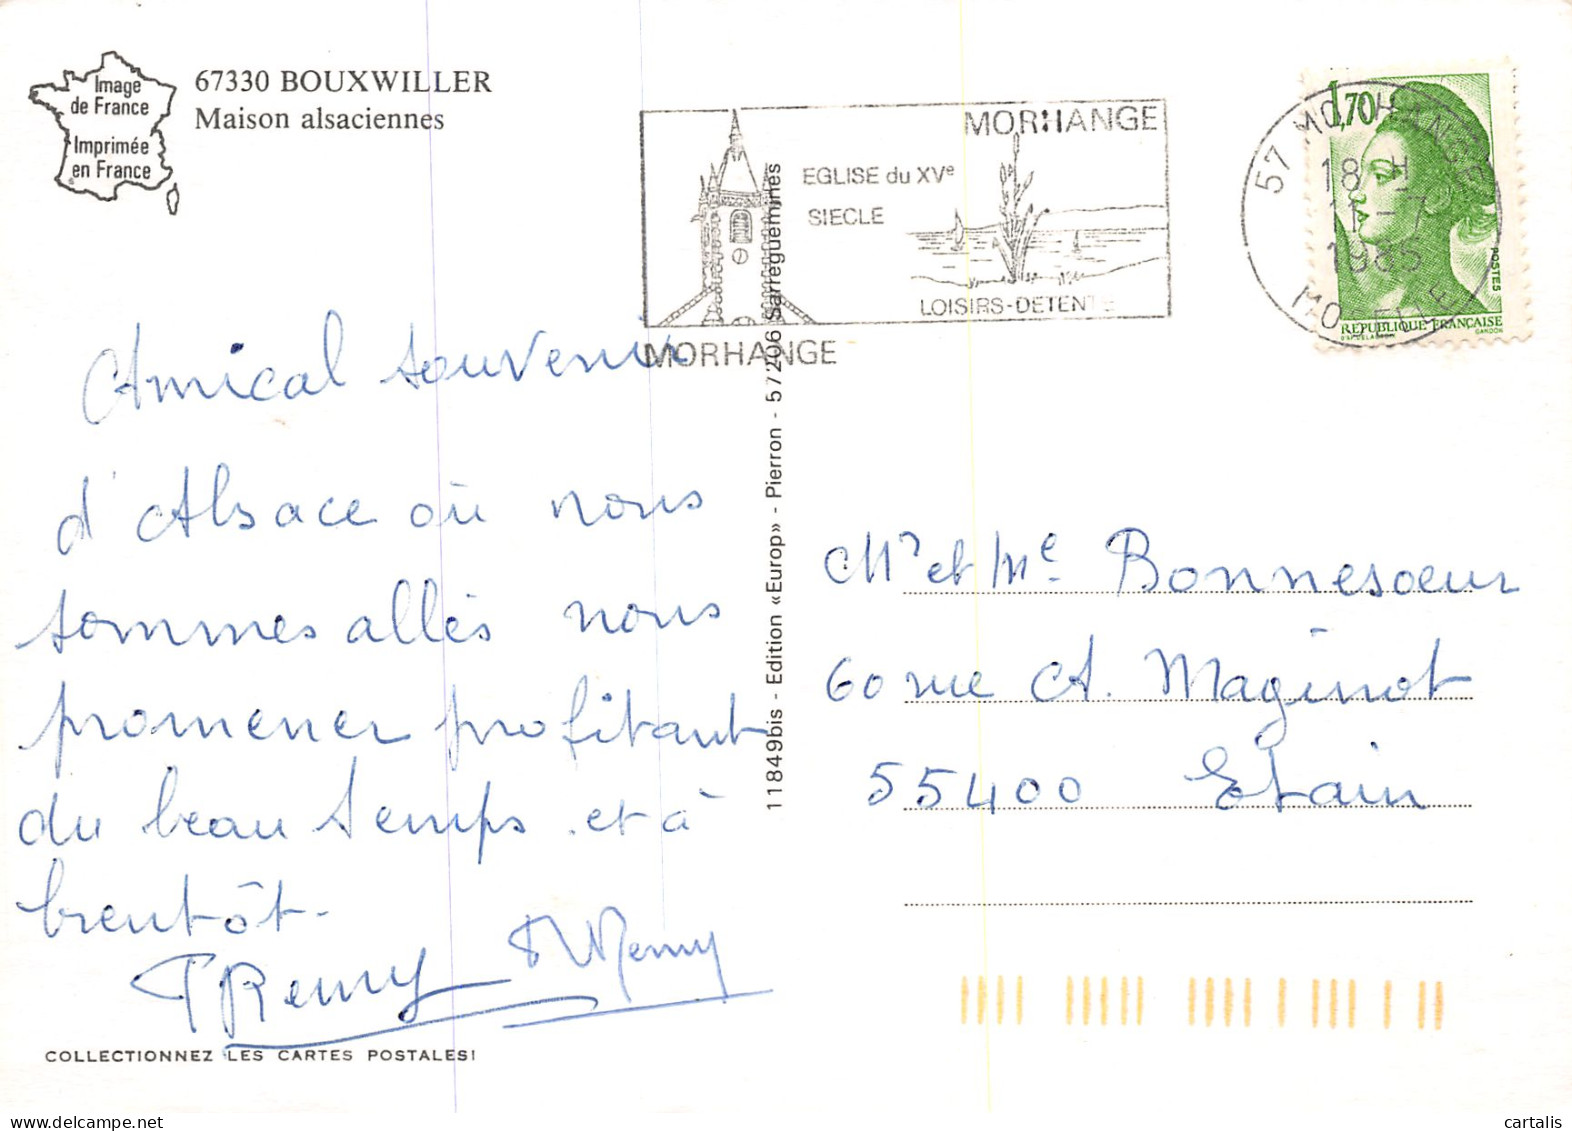 Image
de France
Imprimée
en France
67330 BOUXWILLER
Maison alsaciennes
MORHANGE
EGLISE du XVe
SIECLE
LOISIRS-DETENTE
MORHANGE
57 MORHANGE
18 H
11-7
1985
MOSELLE
1,70
POSTES
REPUBLIQUE FRANÇAISE
GANDON
Amical souvenir
d'Alsace où nous
sommes allés nous
promener profitant
du beau temps et à
bientôt.
Remy Remy
11849bis - Edition «Europ» - Pierron - 57206 Sarreguemines
Mr et Me Bonnesoeur
60 rue A. Maginot
55400 Etain
COLLECTIONNEZ LES CARTES POSTALES!
cartalis
www.delcampe.net